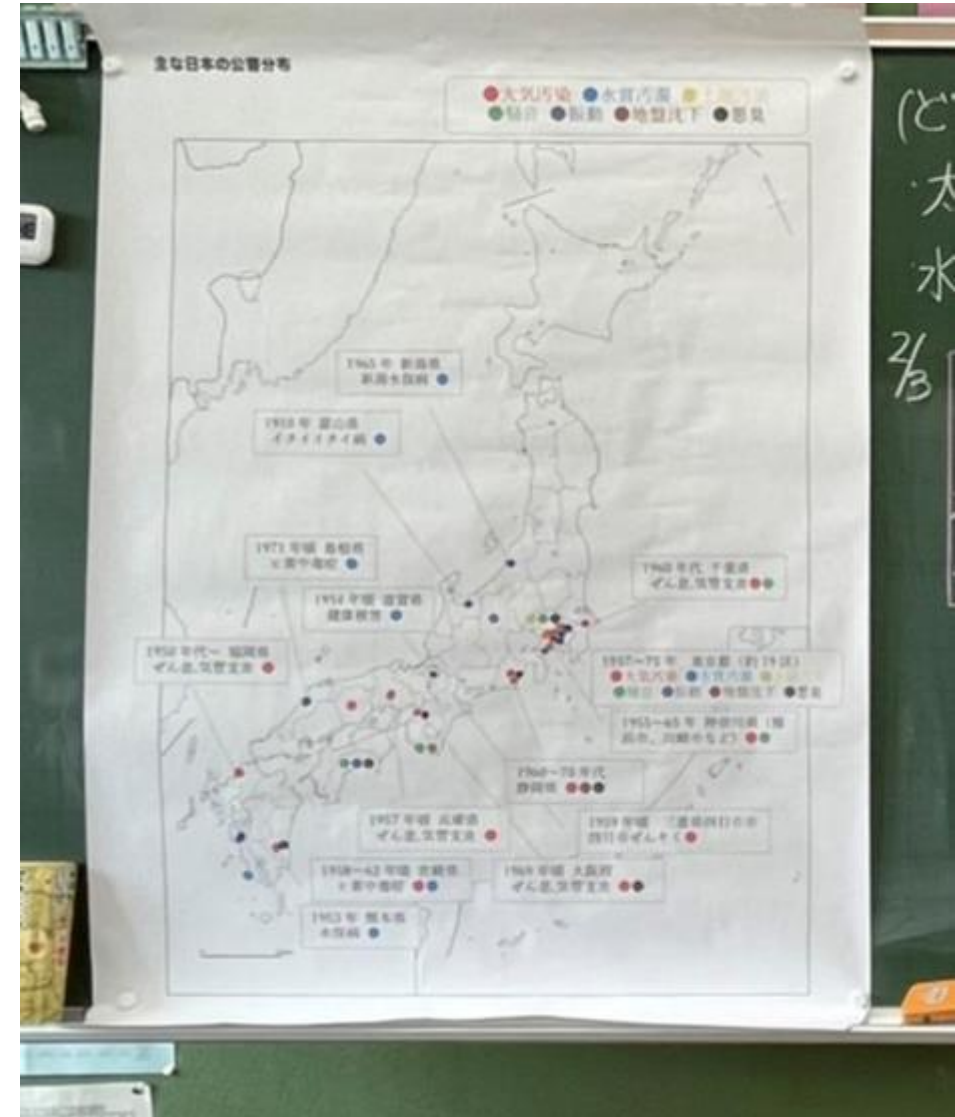 主な日本の公害分布
●大気汚染 ●水質汚濁
●騒音 ●振動 ●地盤沈下 ●悪臭
1965年 新潟県
新潟水俣病 ●
1910年 富山県
イタイイタイ病 ●
1971年頃 島根県
ヒ素中毒症 ●
1960年代 千葉県
ぜん息,気管支炎 ●●
滋賀県
●
1950年代～ 福岡県
ぜん息,気管支炎 ●
東京都
●大気汚染 ●水質汚濁
●騒音 ●振動 ●地盤沈下 ●悪臭
1955～65年 神奈川県（横
浜市、川崎市など）●●
1960～70年代
静岡県 ●●●
1957年頃 兵庫県
ぜん息,気管支炎 ●
1959年頃 三重県四日市市
四日市ぜんそく ●
宮崎県
ヒ素中毒症 ●●
1969年頃 大阪府
ぜん息,気管支炎 ●●
1953年 熊本県
水俣病 ●
(ど
・太
・水
2/3